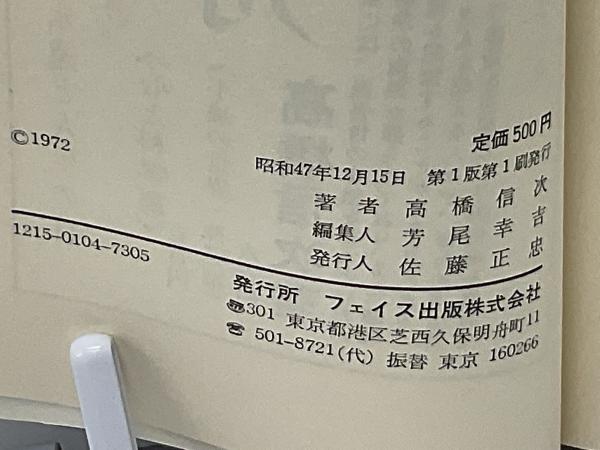 定価500円
©1972
昭和47年12月15日 第1版第1刷発行
著者 高橋信次
編集人 芳尾幸吉
発行人 佐藤正忠
1215-0104-7305
発行所 フェイス出版株式会社
〠301 東京都港区芝西久保明舟町11
☎ 501-8721(代) 振替 東京 160266